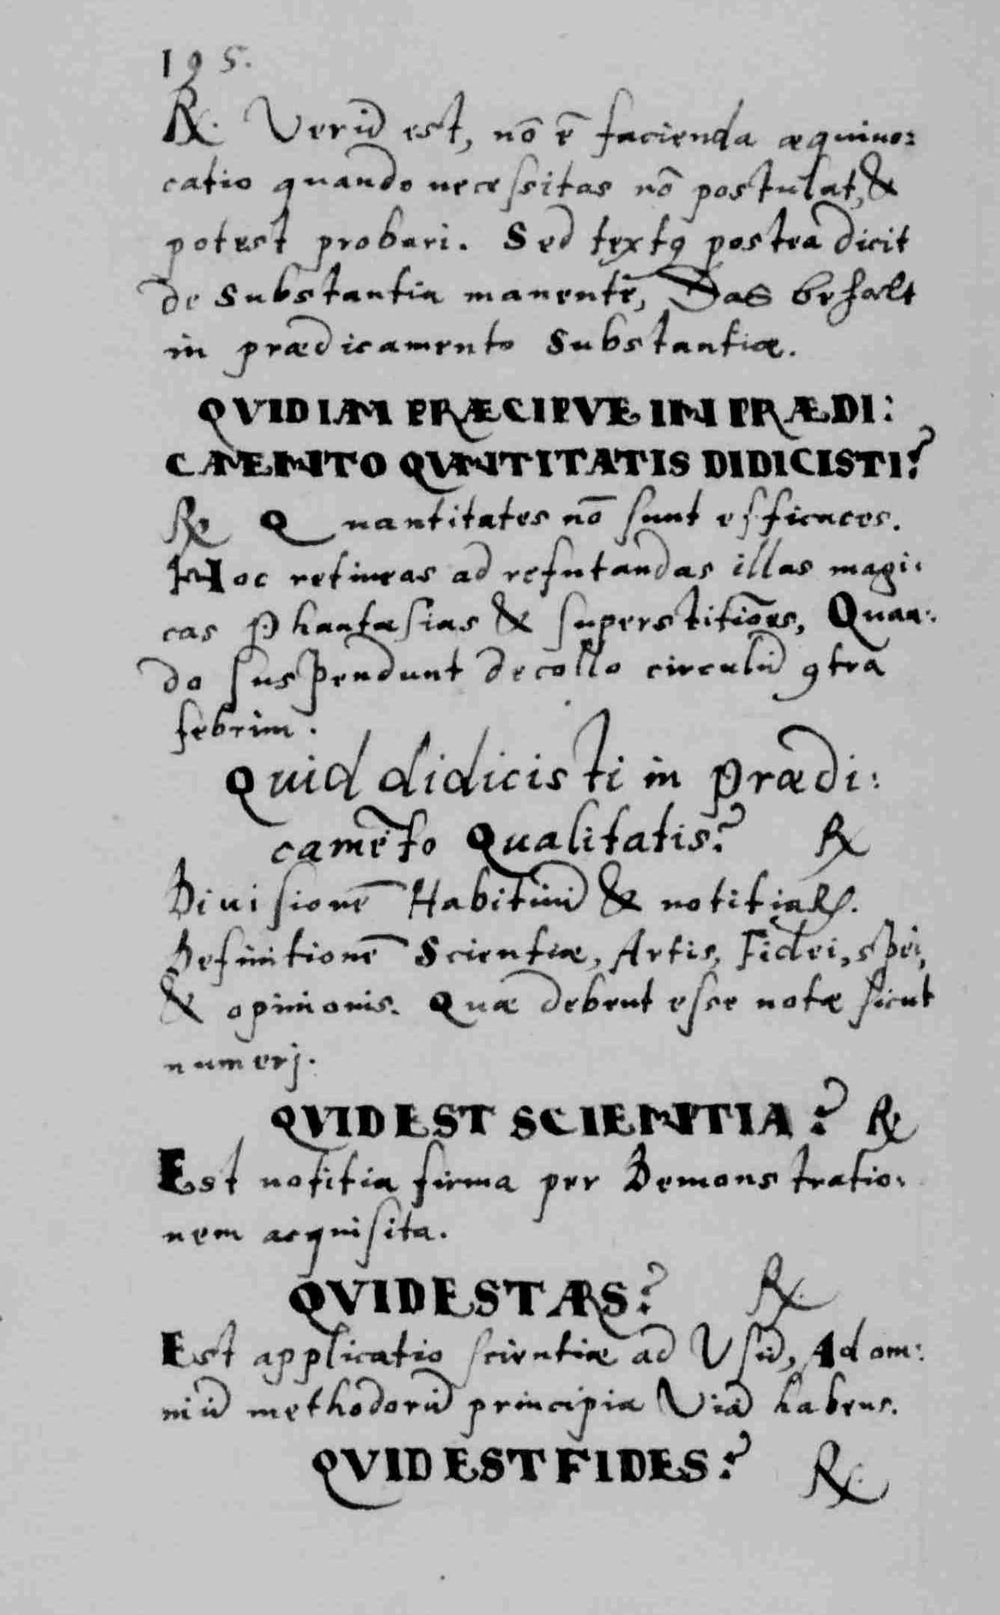 195.
℞. Verū est, nō ē facienda æquiuo:
catio quando necessitas nō postulat, &
potest probari. Sed textꝰ postea dicit
de substantia manente, Das behelt
in prædicamento substantiæ.
QVID IAM PRÆCIPVE IN PRÆDI:
CAMENTO QVANTITATIS DIDICISTI?
℞ Quantitates nō sunt efficaces.
Hoc retineas ad refutandas illas magi:
cas Phantasias & superstitiōes, Quan:
do suspendunt de collo circulū ꝯtra
febrim.
Quid didicisti in prædi:
camēto Qualitatis? ℞
Diuisionē Habituū & notitiaꝝ.
Definitionē Scientiæ, Artis, Fidei, spei,
& opinionis. Quæ debent esse notæ sicut
numerj.
QVID EST SCIENTIA? ℞
Est notitia firma per Demonstratio:
nem acquisita.
QVID EST ARS? ℞.
Est applicatio scientiæ ad Vsū, Ad om:
niū methodorū principia Viā habens.
QVID EST FIDES? ℞.